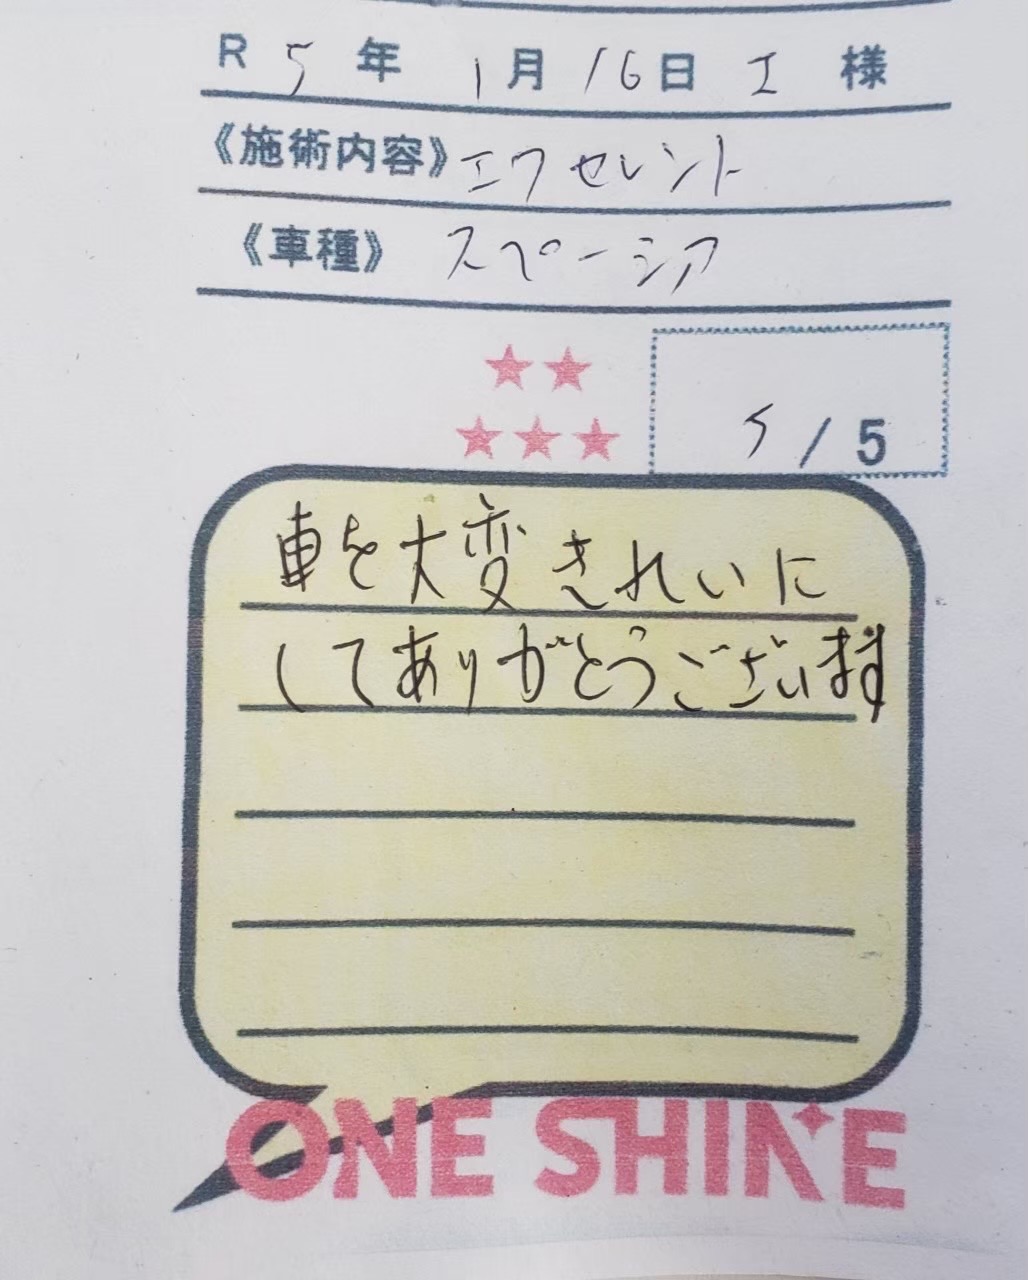 R 5年 1月16日 I 様
《施術内容》エクセレント
《車種》スペーシア
5/5
車を大変きれいに
してありがとうございます
ONE SHINE